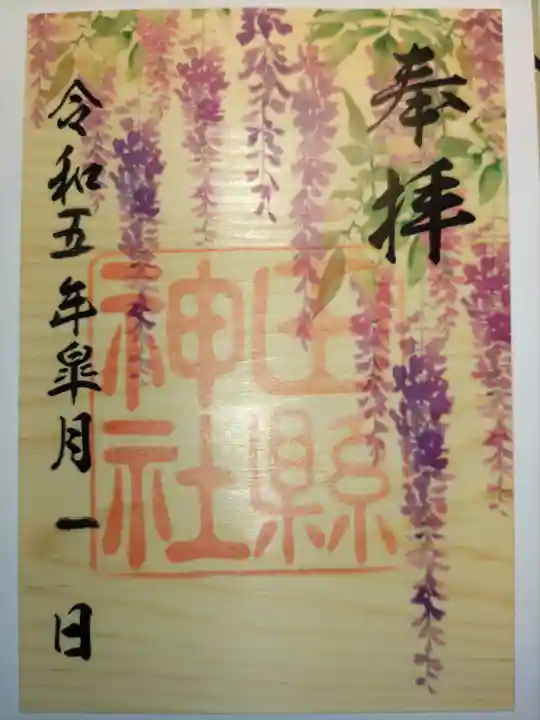 奉拝
田縣
神社
令和五年皐月一日